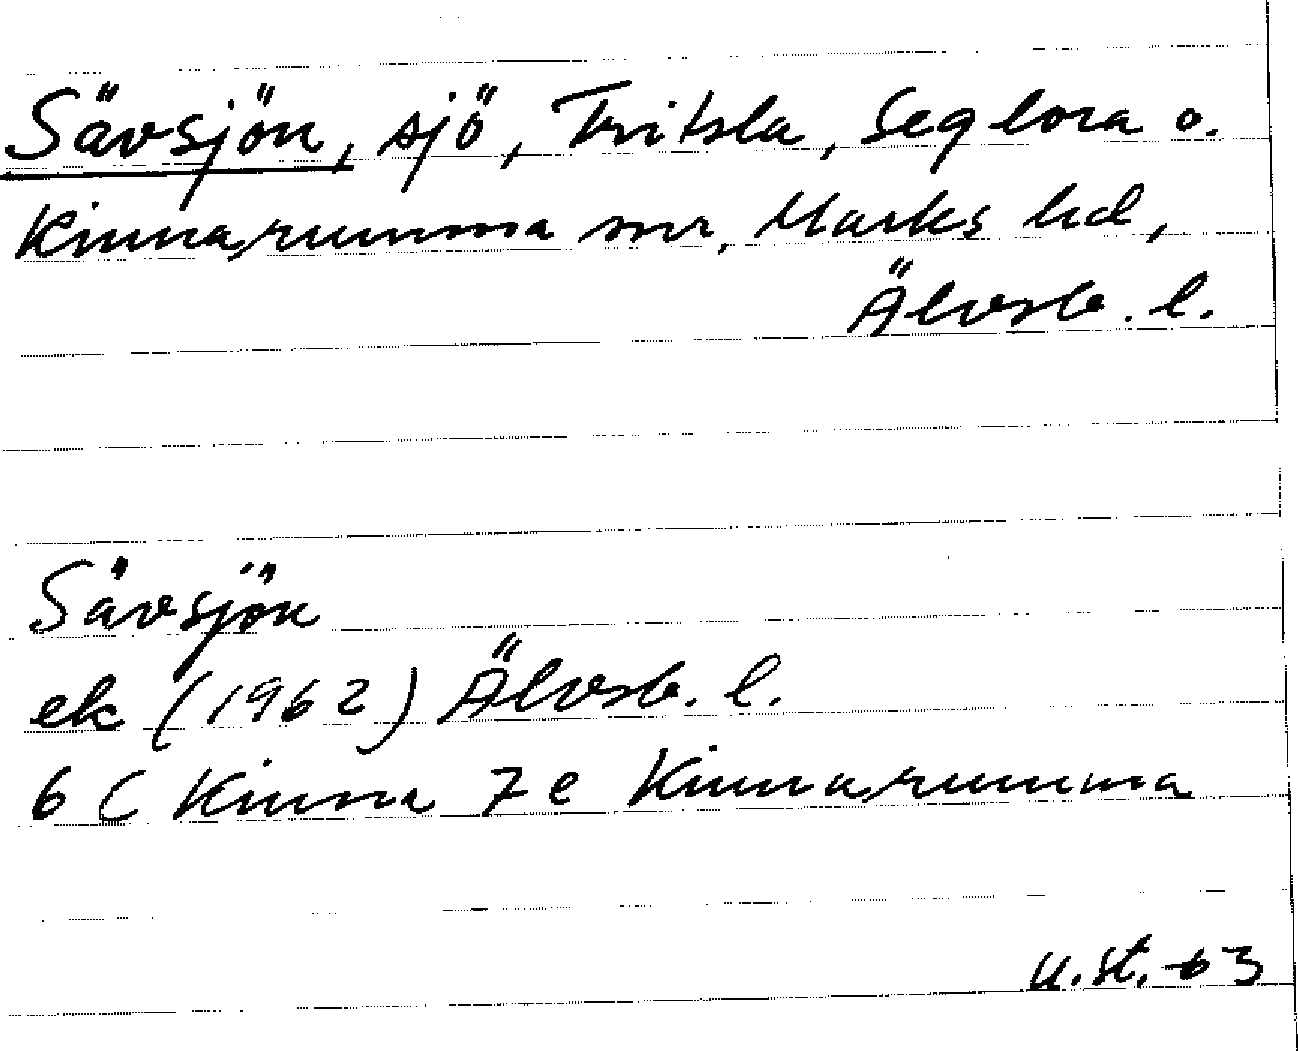 Sävsjön, sjö, Fritsla, Seglora o.
Kinnarumma snr, Marks hd,
Älvsb. l.
Sävsjön
ek (1962) Älvsb. l.
6 C Kinna 7e Kinnarumma
u.st.-63